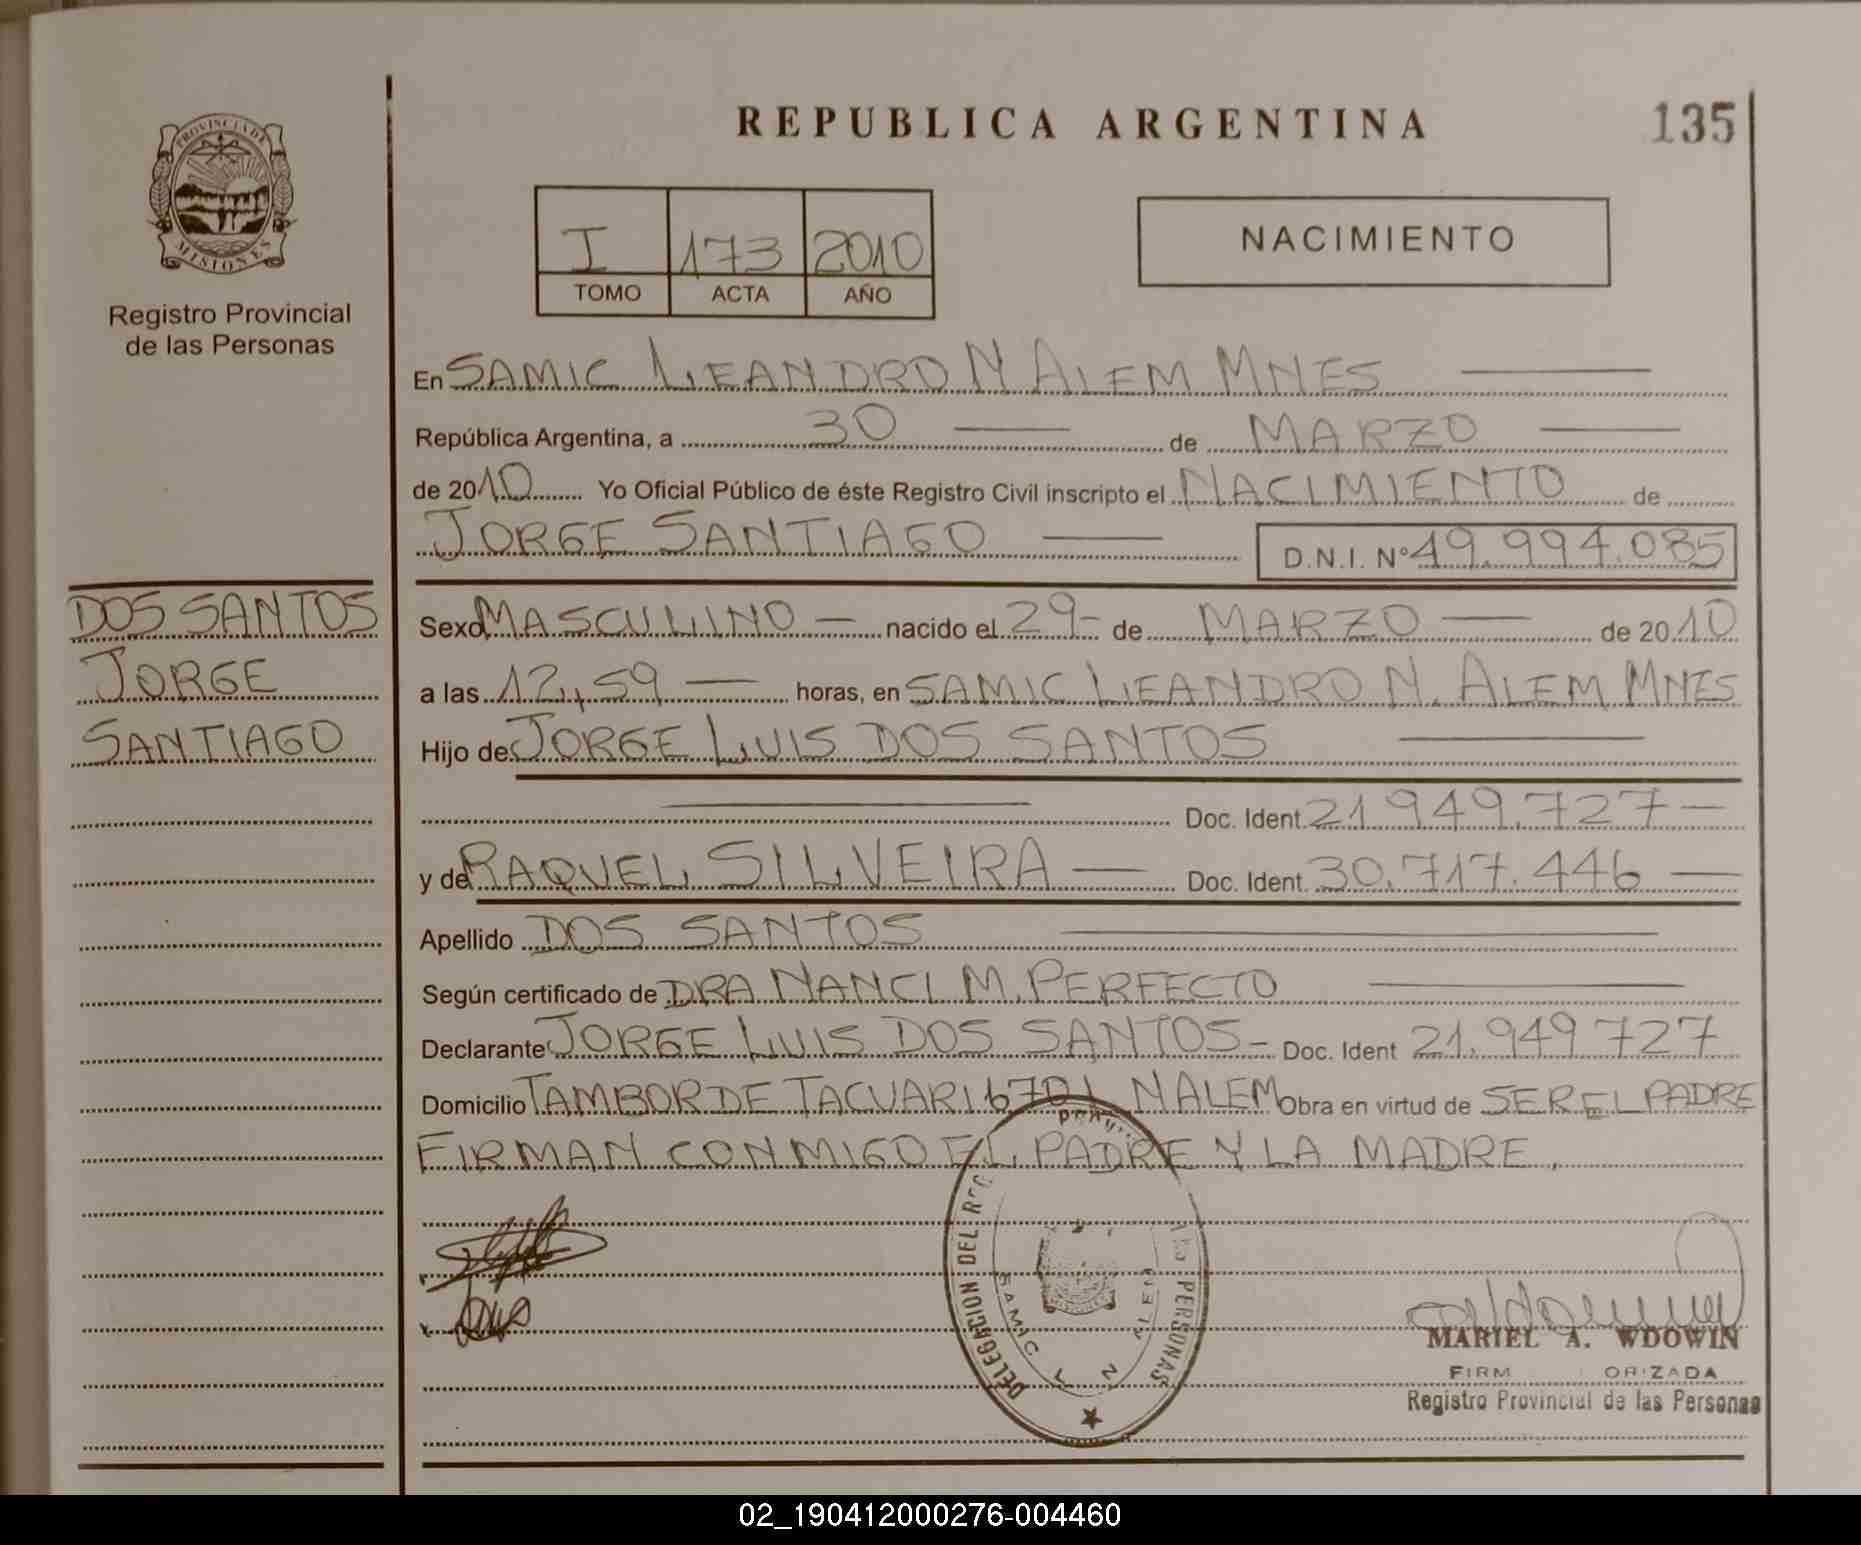 REPUBLICA ARGENTINA
135
PROVINCIA DE
MISIONES
Registro Provincial
de las Personas
I 173 2010
TOMO ACTA AÑO
NACIMIENTO
En SAMIC LEANDRO N ALEM MNES
República Argentina, a 30 de MARZO
de 2010 Yo Oficial Público de éste Registro Civil inscripto el NACIMIENTO de
JORGE SANTIAGO D.N.I. Nº 49.994.085
DOS SANTOS
JORGE
SANTIAGO
Sexo MASCULINO nacido el 29 - de MARZO de 2010
a las 12,59 horas, en SAMIC LEANDRO N. ALEM MNES
Hijo de JORGE LUIS DOS SANTOS
Doc. Ident. 21.949.727
y de RAQUEL SILVEIRA Doc. Ident. 30.717.446
Apellido DOS SANTOS
Según certificado de DRA NANCI M. PERFECTO
Declarante JORGE LUIS DOS SANTOS - Doc. Ident 21.949727
Domicilio TAMBOR DE TACUARI 670 L N ALEM Obra en virtud de SER EL PADRE
FIRMAN CONMIGO EL PADRE Y LA MADRE.
DELEGACION DEL REG PERSONAS
SAMIC L N ALEM
MARIEL A. WDOWIN
FIRM ORIZADA
Registro Provincial de las Personas
02_190412000276-004460